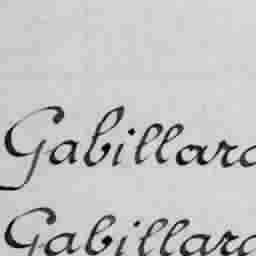 Gabillard
Gabillard